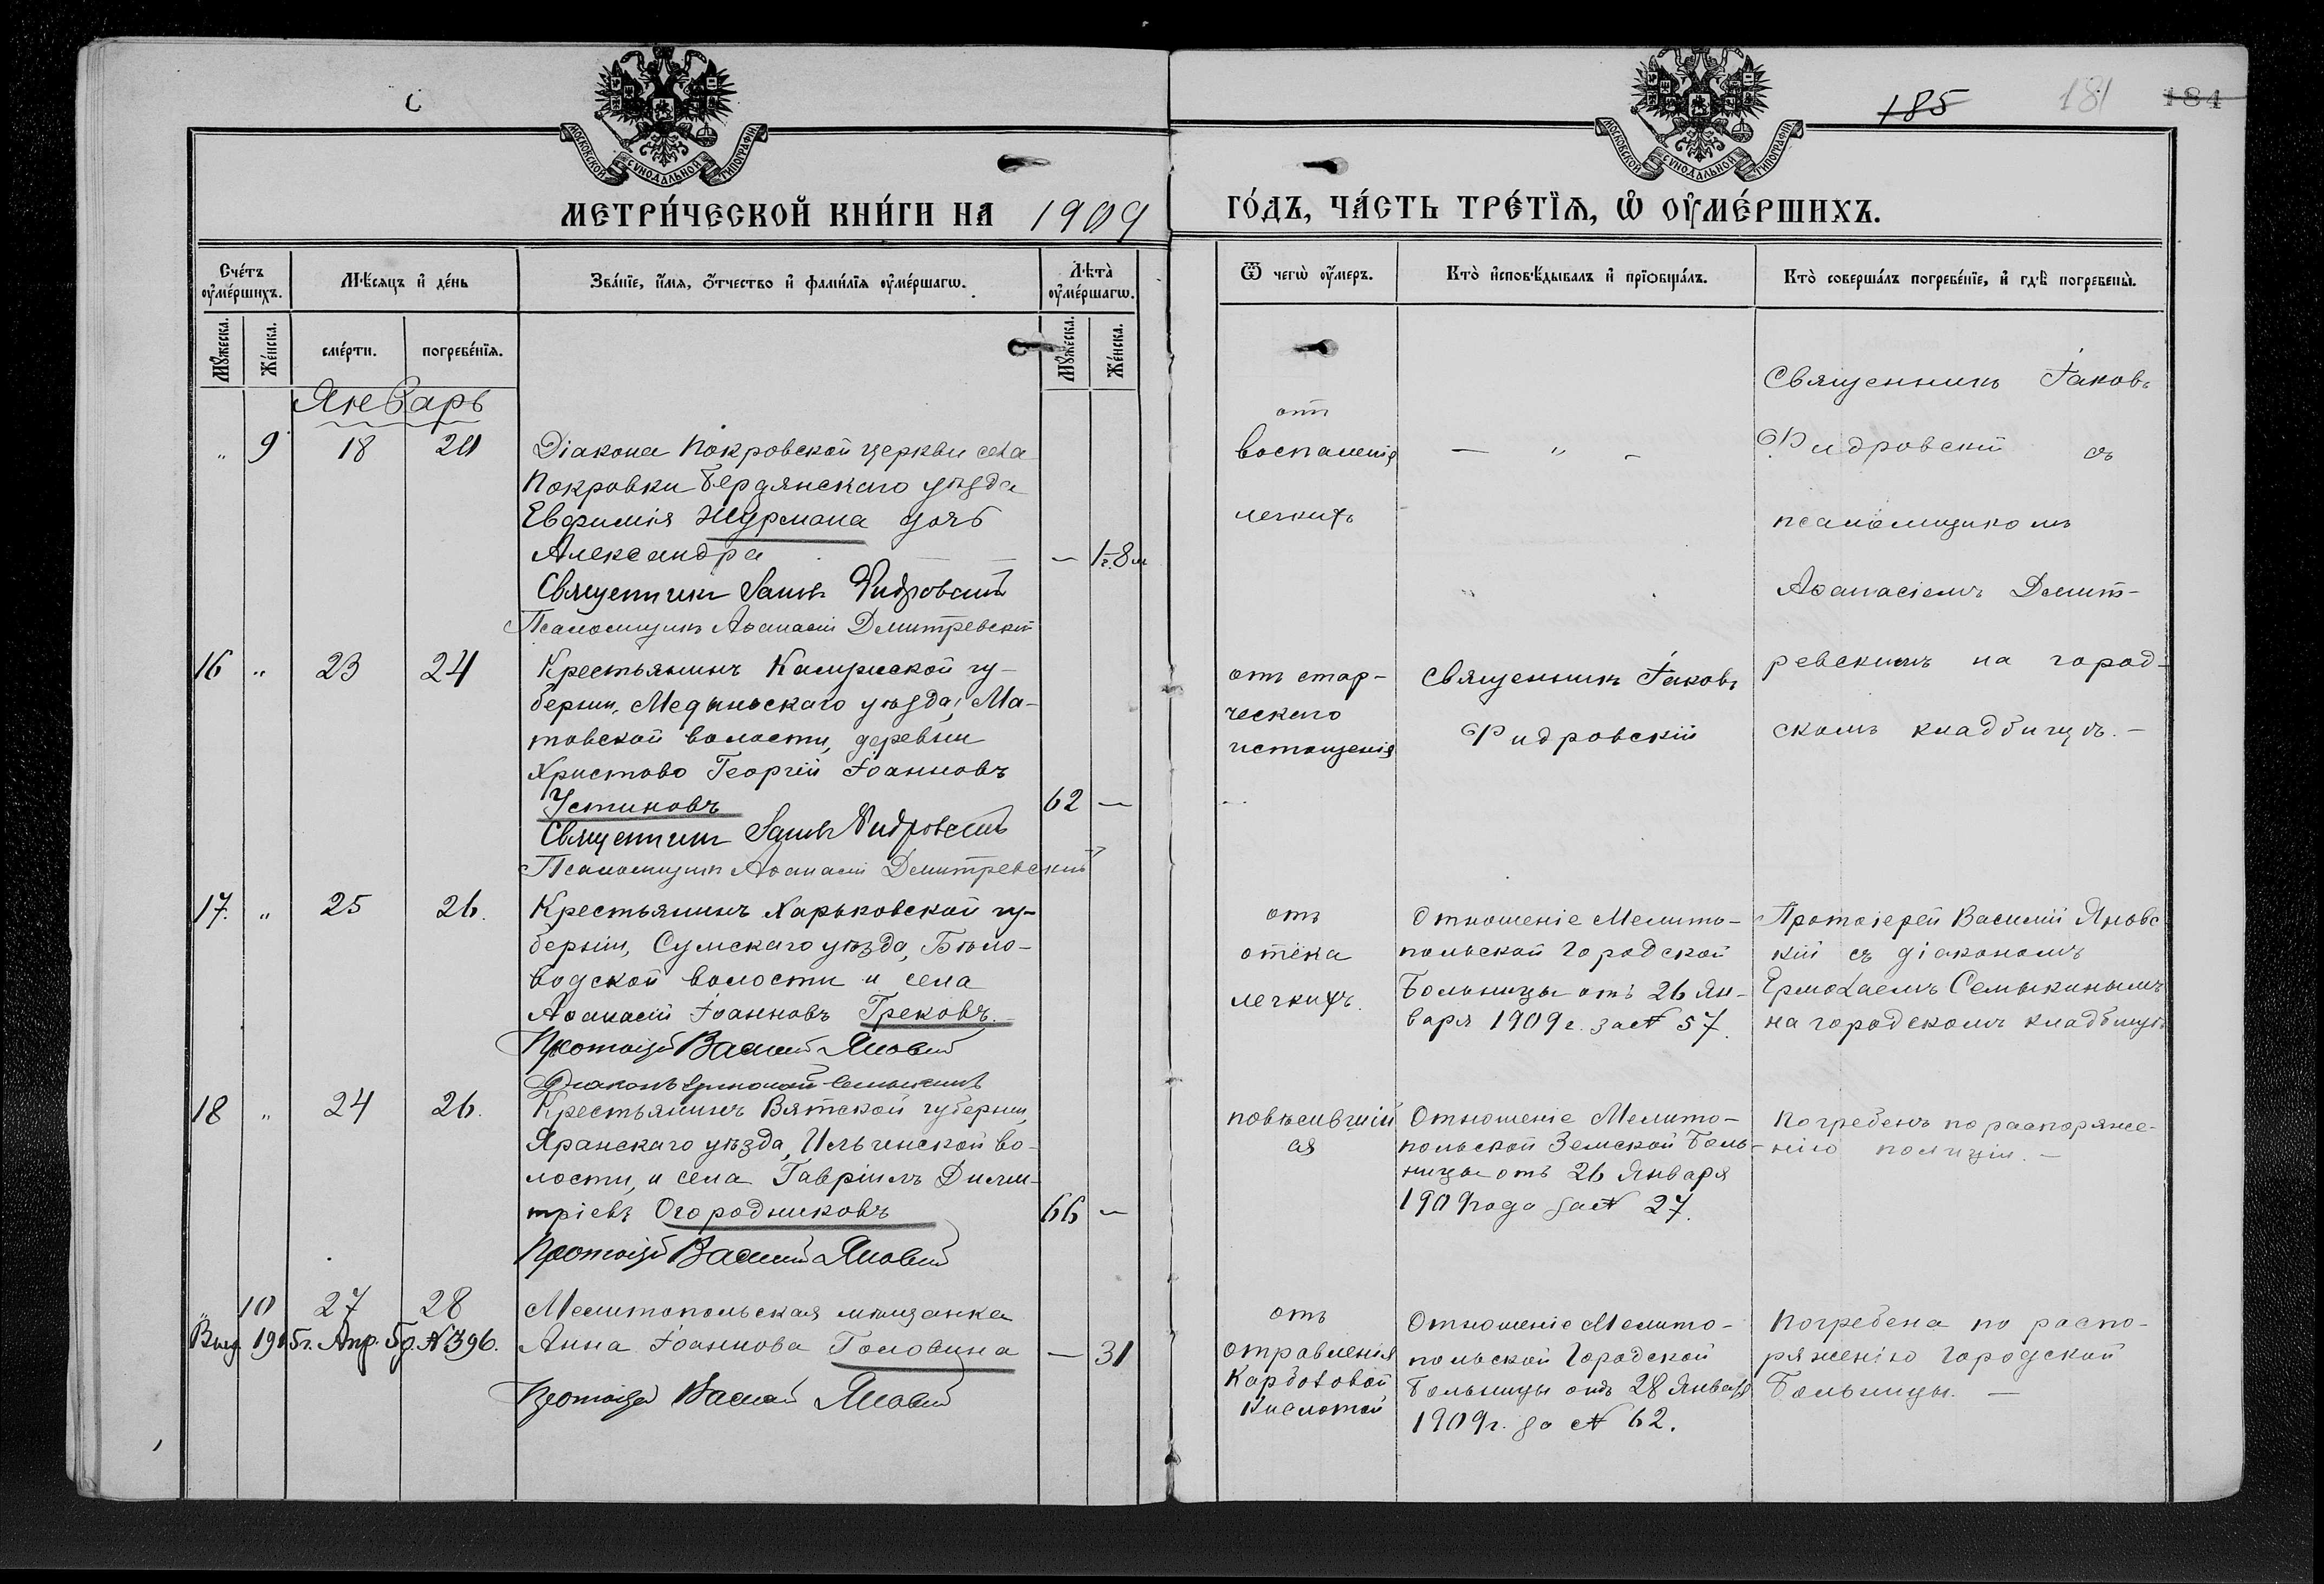 185 181 184
МОСКОВСКОЙ СѴНОДАЛЬНОЙ ТИПОГРАФІИ
МОСКОВСКОЙ СѴНОДАЛЬНОЙ ТИПОГРАФІИ
МЕТРИ́ЧЕСКОЙ КНИ́ГИ НА 1909
ГО́ДЪ, ЧА́СТЬ ТРЕ́ТЇѦ, Ѡ҆ ОУ҆МЕ́РШИХЪ.
Сче́тъ оу҆ме́ршихъ.
Мѣ́сѧцъ и҆ де́нь
Зва́нїе, и҆́мѧ, о҆́тчество и҆ фами́лїѧ оу҆ме́ршагѡ.
Лѣ́та оу҆ме́ршагѡ.
Ѿ чегѡ̀ оу҆́меръ.
Кто̀ и҆сповѣ́дывалъ и҆ прїѡбща́лъ.
Кто̀ соверша́лъ погребе́нїе, и҆ гдѣ̀ погребены̀.
Мꙋ́жеска.
Же́нска.
сме́рти.
погребе́нїѧ.
Мꙋ́жеска.
Же́нска.
Январь
" 9 18 20
Діакона Покровской церкви села
Покровки Бердянскаго уѣзда
Евфимія Журмана дочь
Александра — 1г. 8м
Священникъ Іаковъ Фидровскій
Псаломщикъ Аѳанасій Дмитревскій
отъ
воспаленія
легкихъ
— " —
Священникъ Іаковъ
Фидровскій съ
псаломщикомъ
Аѳанасіемъ Дмит-
ревскимъ на город-
скомъ кладбищѣ. —
16 " 23 24
Крестьянинъ Калужской гу-
берніи, Медынскаго уѣзда, Ма-
товской волости, деревни
Христово Георгій Іоанновъ
Устиновъ 62 —
Священникъ Іаковъ Фидровскій
Псаломщикъ Аѳанасій Дмитревскій
отъ стар-
ческаго
истощенія
Священникъ Іаковъ
Фидровскій
17. " 25 26.
Крестьянинъ Харьковской гу-
берніи, Сумскаго уѣзда, Бѣло-
водской волости и села
Аѳанасій Іоанновъ Грековъ. —
Протоіерей Василій Яновскій
Діаконъ Ермолай Семыкинъ
отъ
отека
легкихъ.
Отношеніе Мелито-
польской Городской
Больницы отъ 26 Ян-
варя 1909 г. за № 57.
Протоіерей Василій Яновс
кій съ діакономъ
Ермолаемъ Семыкинымъ
на городскомъ кладбищѣ
18 " 24 26.
Крестьянинъ Вятской губерніи,
Яранскаго уѣзда, Ильинской во-
лости, и села Гавріилъ Дими-
тріевъ Огородниковъ 66 —
Протоіерей Василій Яновскій
повѣсившій
ся
Отношеніе Мелито-
польской Земской Боль-
ницы отъ 26 Января
1909 года за № 27.
Погребенъ по распоряже-
нію полиціи. —
" 10 27 28
Мелитопольская мѣщанка
Выд. 1915 г. Апр. 5 д. № 396.
Анна Іоаннова Головина — 31
Протоіерей Василій Яновскій
отъ
отравленія
Карболовой
Кислотой
Отношеніе Мелито-
польской Городской
Больницы отъ 28 Января
1909 г. за № 62.
Погребена по распо-
ряженію Городской
Больницы. —